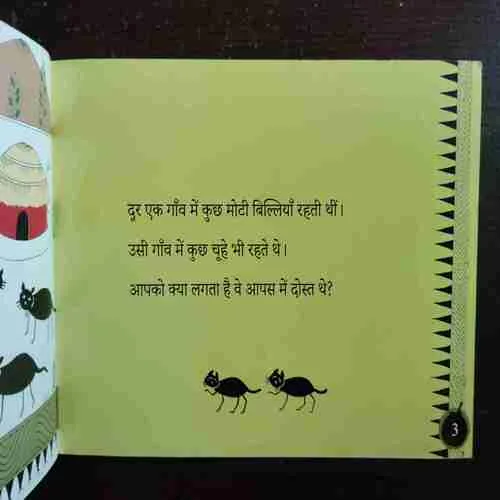 दूर एक गाँव में कुछ मोटी बिल्लियाँ रहती थीं।
उसी गाँव में कुछ चूहे भी रहते थे।
आपको क्या लगता है वे आपस में दोस्त थे?
3